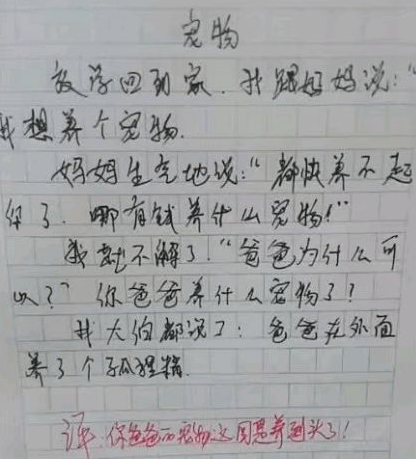 宠物
放学回到家.我跟妈妈说:“
我想养个宠物.
妈妈生气地说:“都快养不起
你了.哪有钱养什么宠物!”
我就不解了.“爸爸为什么可
以?”你爸爸养什么宠物了?
我大伯都说了:爸爸在外面
养了个狐狸精.
评:你爸爸的宠物这回是养到头了!